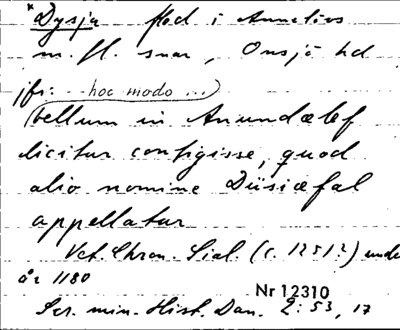 * Dysja flod i Annelövs
m. fl. snar, Onsjö hd
jfr: hoc modo ...)
(bellum in Anundælef
dicitur configisse, quod
alio nomine Düsiæfal
appellatur
Vet. Chron. Sial. (c. 1251?) under
år 1180
Nr 12310
Scr. min. Hist. Dan. 2: 53, 17